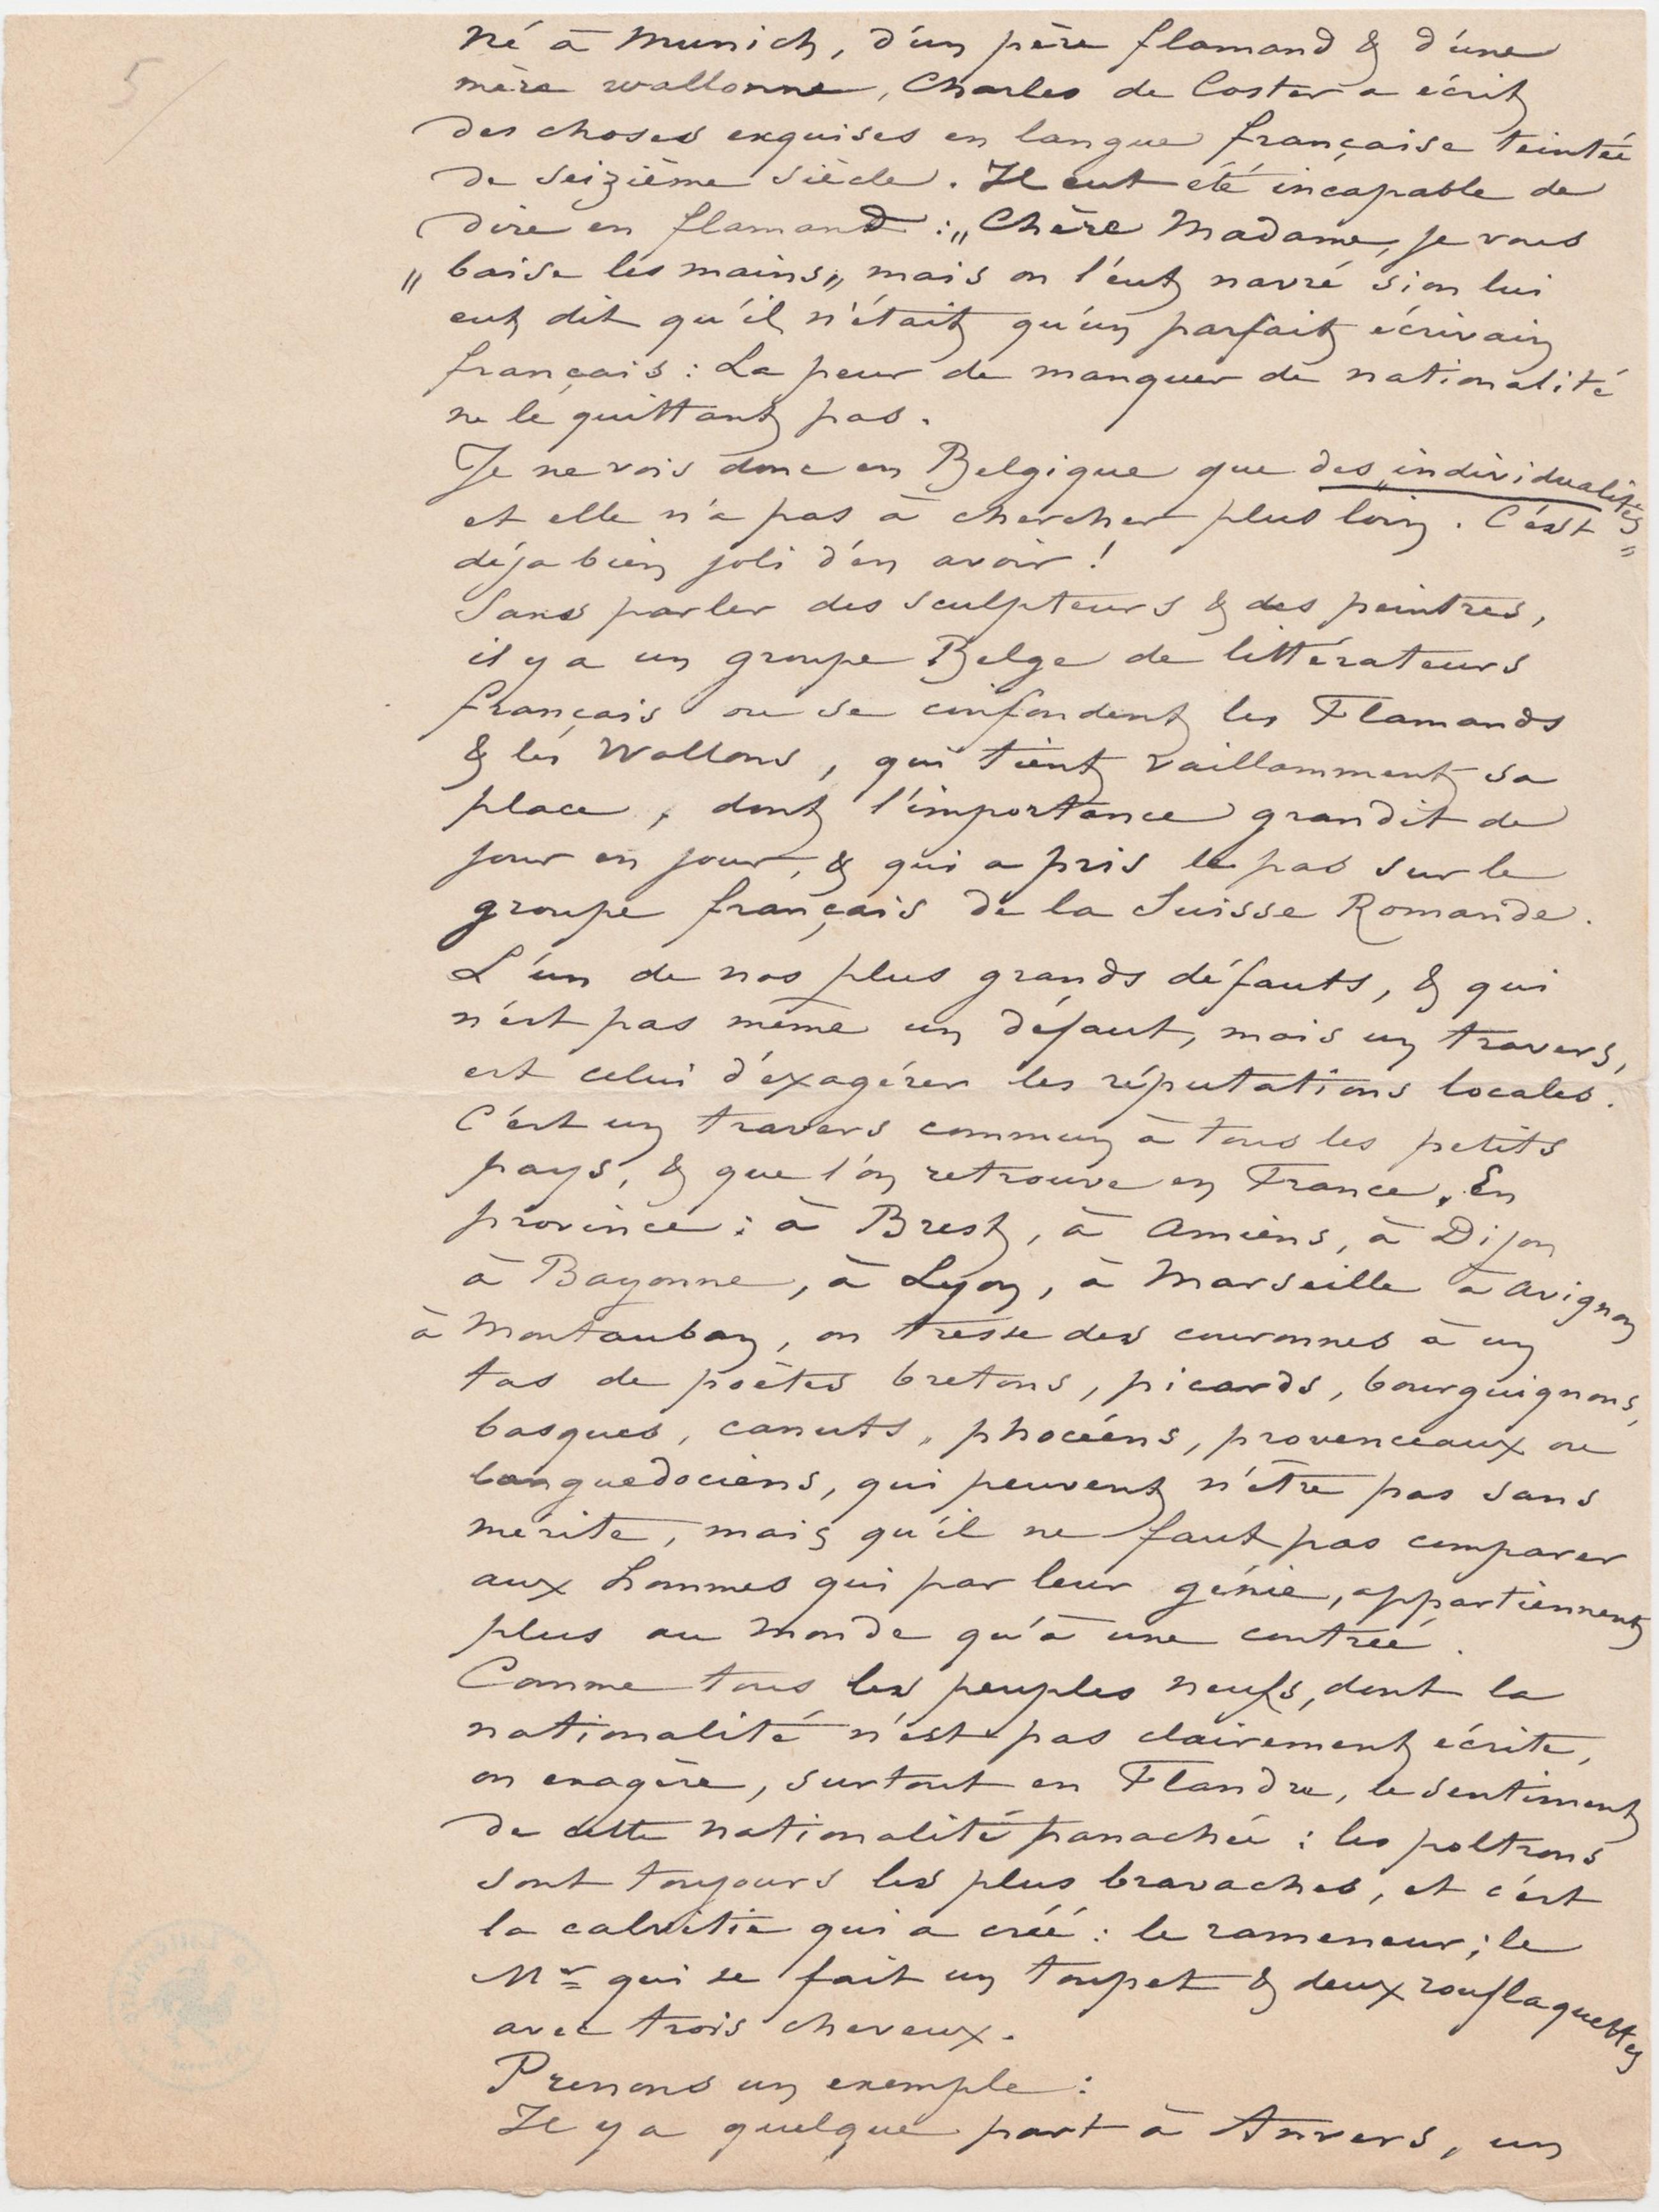 5
Né à Munich, d'un père flamand & d'une
mère wallonne, Charles de Coster a écrit
des choses exquises en langue française teintée
de seizième siècle. Il eut été incapable de
dire en flamand : „Chère Madame, je vous
„ baise les mains„ mais on l'eut navré si on lui
eut dit qu'il n'était qu'un parfait écrivain
français : La peur de manquer de nationalité
ne le quittant pas.
Je ne vois donc en Belgique que des „individualités„
et elle n'a pas à chercher plus loin. C'est
déja bien joli d'en avoir !
Sans parler des sculpteurs & des peintres,
il y a un groupe Belge de littérateurs
français ou se confondent les Flamands
& les Wallons, qui tient vaillamment sa
place, dont l'importance grandit de
jour en jour, & qui a pris le pas sur le
groupe français de la Suisse Romande.
L'un de nos plus grands défauts, & qui
n'est pas même un défaut, mais un travers,
est celui d'éxagérer les réputations locales.
C'est un travers commun à tous les petits
pays, & que l'on retrouve en France, En
province : à Brest, à Amiens, à Dijon
à Bayonne, à Lyon, à Marseille à Avignon
à Montauban, on tresse des couronnes à un
tas de poètes bretons, picards, bourguignons,
basques, canuts, phocéens, provenceaux ou
languedociens, qui peuvent n'être pas sans
mérite, mais qu'il ne faut pas comparer
aux hommes qui par leur génie, appartiennent
plus au monde qu'à une contrée.
Comme tous les peuples neufs, dont la
nationalité n'est pas clairement écrite,
on exagère, surtout en Flandre, le sentiment
de cette nationalité panachée : les poltrons
sont toujours les plus bravaches, et c'est
la calvitie qui a créé : le rameneur ; le
Mr qui se fait un toupet & deux rouflaquettes
avec trois cheveux.
Prenons un exemple :
Il y a quelque part à Anvers, un